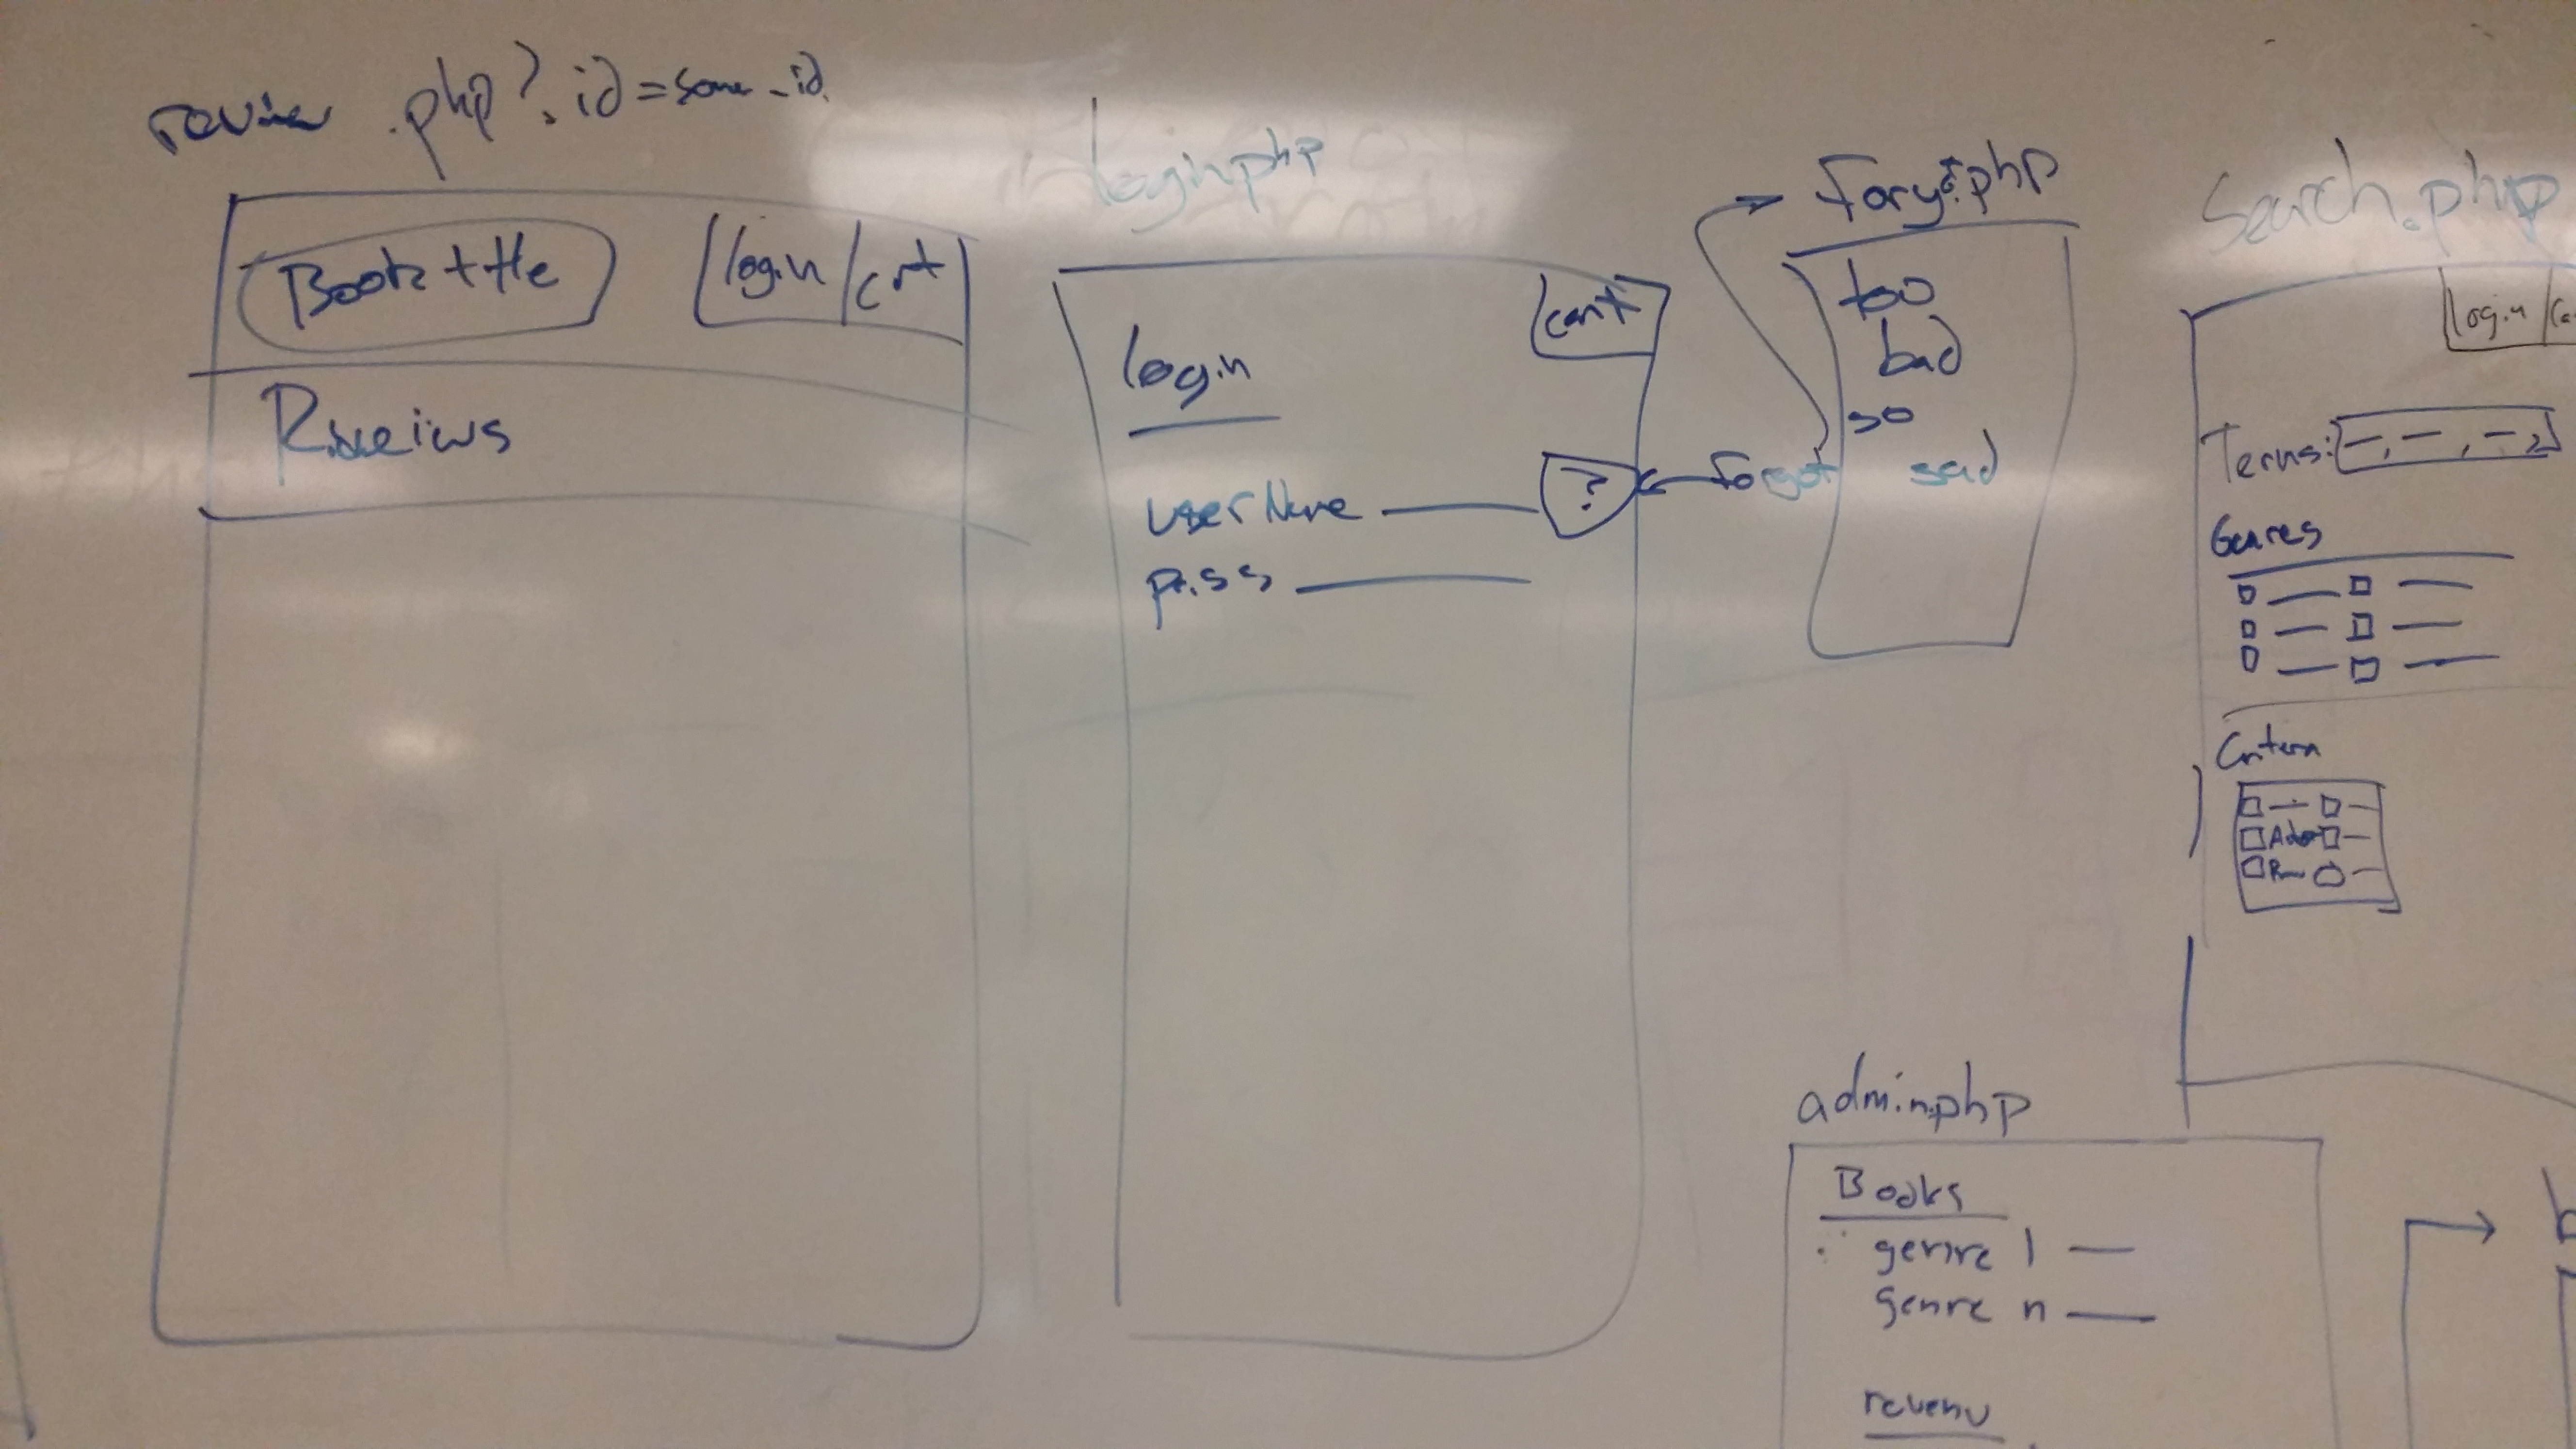 review.php?id=some_id
Book title
login/crt
Reveiws
login.php
cart
login
userName
?
forgot
pass
too
bad
so
sad
Search.php
login
Terms:
Genres
admin.php
Books
genre 1
genre n
revenu